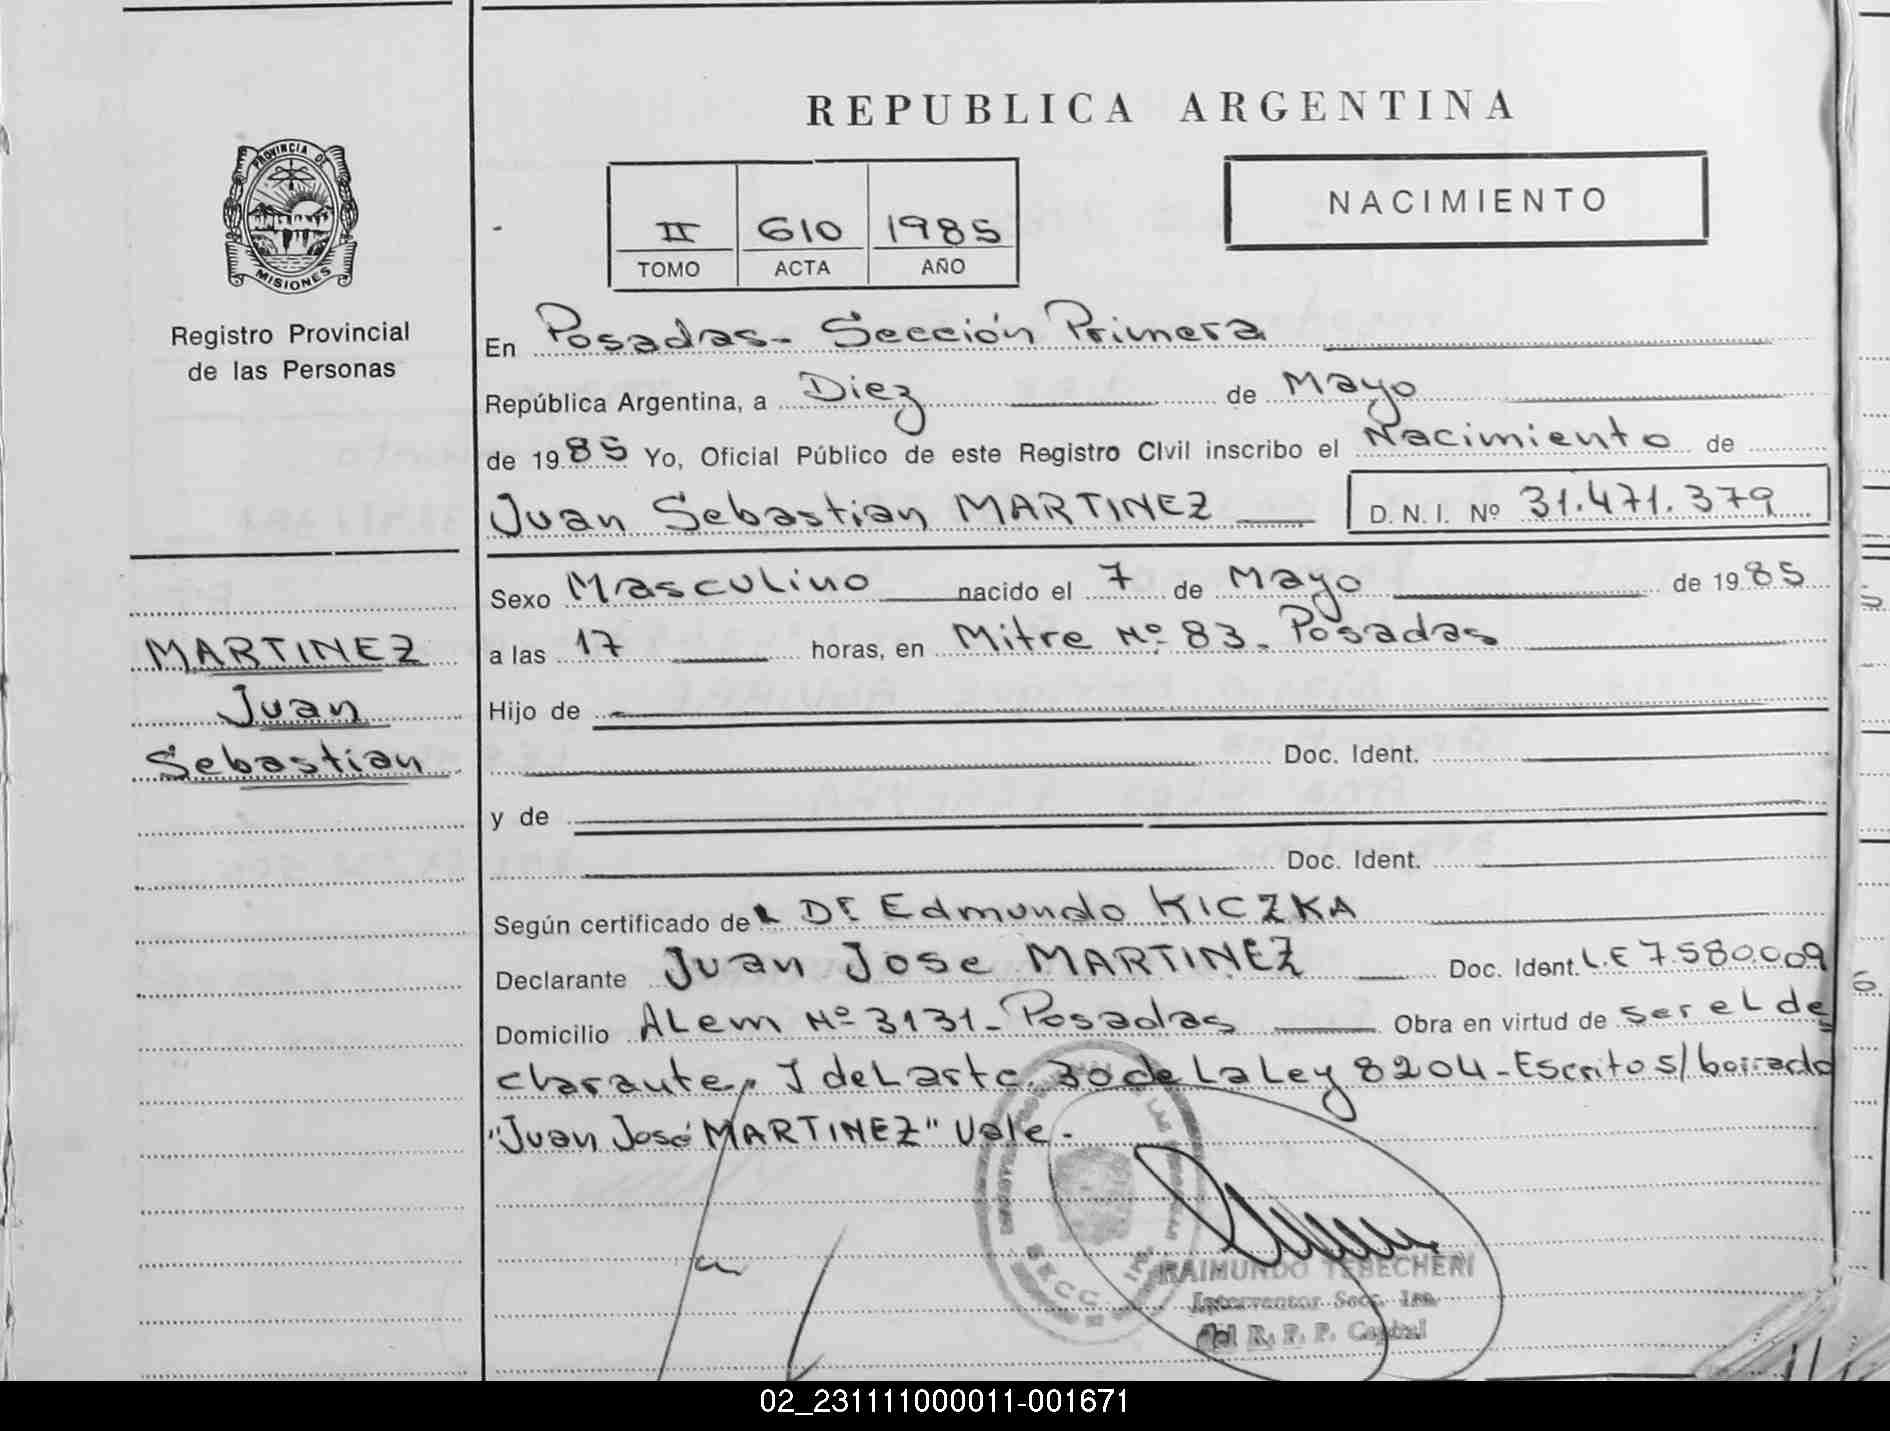 REPUBLICA ARGENTINA
PROVINCIA DE
MISIONES
Registro Provincial
de las Personas
II 610 1985
TOMO ACTA AÑO
NACIMIENTO
En Posadas - Sección Primera
República Argentina, a Diez de Mayo
de 1985 Yo, Oficial Público de este Registro Civil inscribo el Nacimiento de
Juan Sebastian MARTINEZ D.N.I. Nº 31.471.379
MARTINEZ
Juan
Sebastian
Sexo Masculino nacido el 7 de Mayo de 1985
a las 17 horas, en Mitre Nº 83 - Posadas
Hijo de
Doc. Ident.
y de
Doc. Ident.
Según certificado del Dr Edmundo KICZKA
Declarante Juan Jose MARTINEZ Doc. Ident. L.E 7.580.009
Domicilio Alem Nº 3131 - Posadas Obra en virtud de ser el de
clarante, J del artc. 30 de la Ley 8204 - Escrito s/ borrado
"Juan José MARTINEZ" Vale.
SECC.
RAIMUNDO TEBECHERI
Interventor Secc. 1ra.
del R. P. P. Capital
02_231111000011-001671